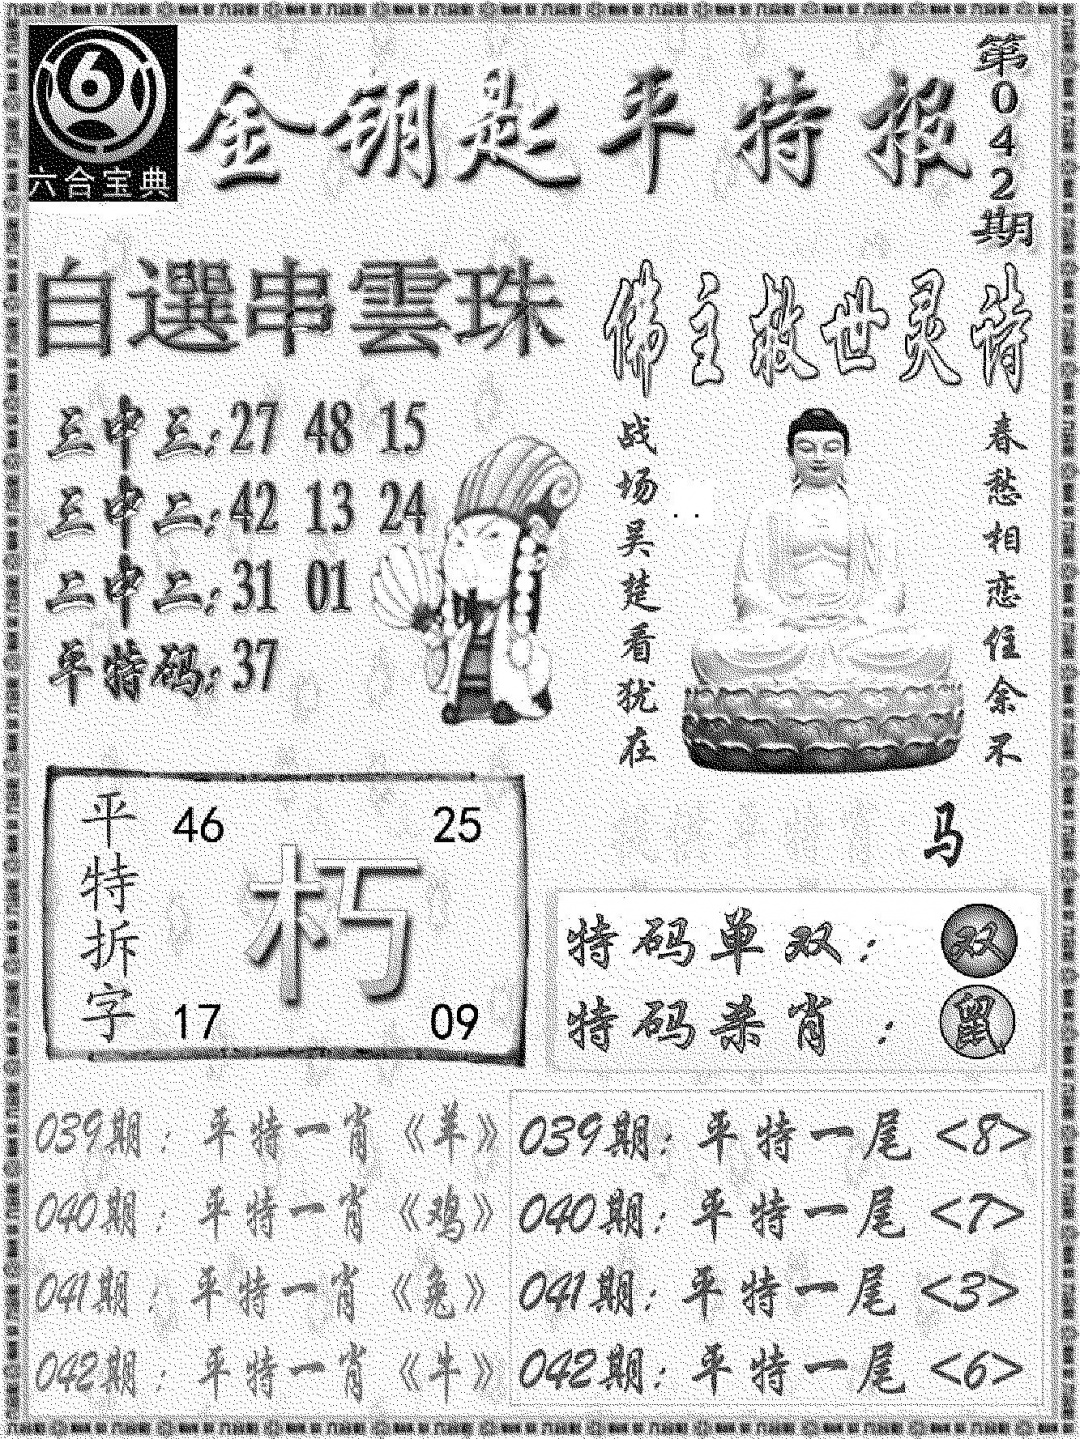 六合宝典
金钥匙平特报
第042期
自選串雲珠
三中三:27 48 15
三中二:42 13 24
二中二:31 01
平特码:37
佛主救世灵诗
春愁相恋住余不
战场吴楚看犹在
马
平特拆字
46 25
朽
17 09
特码单双:双
特码杀肖:鼠
039期:平特一肖《羊》
040期:平特一肖《鸡》
041期:平特一肖《兔》
042期:平特一肖《牛》
039期:平特一尾<8>
040期:平特一尾<7>
041期:平特一尾<3>
042期:平特一尾<6>